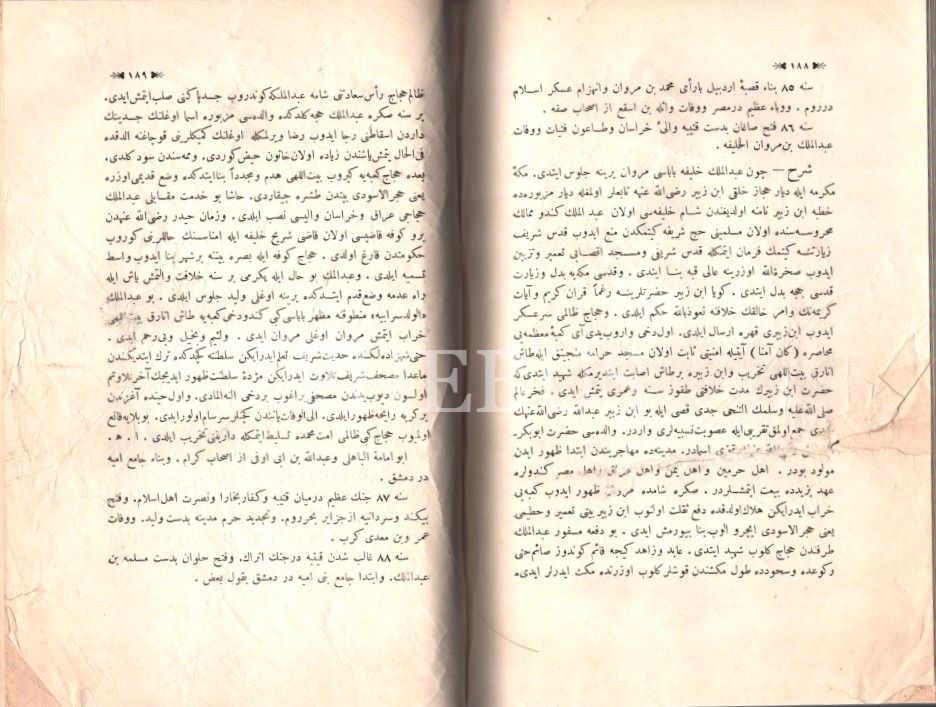 ١٨٨
سنه ٨٥ بناء قصبۀ اردبیل بارأی محمد بن مروان وانهزام عسکر اسلام
درروم . ووباء عظیم درمصر ووفات واثله بن اسقع از اصحاب صفه .
سنه ٨٦ فتح صاغان بدست قتیبه والیٔ خراسان وطاعون فتیات ووفات
عبدالملك بن مروان الخلیفه .
شرح — چون عبدالملك خلیفه باباسی مروان یرینه جلوس ایتدی . مکۀ
مکرمه ایله دیار حجاز خلقی ابن زبیر رضی‌الله عنهه تابعلر اولمغله دیار مزبوره‌ده
خطبه ابن زبیر نامنه اولدیغندن شام خلیفه‌سی اولان عبد الملك کندو ممالك
محروسه‌سنده اولان مسلمینی حج شریفه کیتمکدن منع ایدوب قدس شریف
زیارتنه کیتمك فرمان ایتمکله قدس شریفی ومسجد اقصایی تعمیر وتزیین
ایدوب صخرة الله اوزرینه عالی قبه بنا ایتدی . وقدسی مکه‌یه بدل وزیارت
قدسی حجه بدل ایتدی . کویا ابن زبیر حضرتلرینه رغماً قران کریم وآیات
کریمه‌نك وامر خالقك خلافنه نعوذبالله حکم ایلدی . وحجاج ظالمی سرعسکر
ایدوب ابن زبیری قهره ارسال ایلدی. اولدخی واروب یدی آی کعبۀ معظمه‌یی
محاصره (کان آمنا) آیتیله امنیتی ثابت اولان مسجد حرامه منجنیق ایله‌طاش
اتارق بیت‌اللهی تخریب وابن زبیره برطاش اصابت ایتدیرمکله شهید ایتدی‌که
حضرت ابن زبیرك مدت خلافتی طقوز سنه وعمری یتمش ایدی . فخرعالم
صلی‌الله‌علیه وسلمك النجی جدی قصی ایله بو ابن زبیر عبدالله رضی‌الله‌عنهك
جدی جمع اولمق تقریبی ایله عصوبت نسبیه‌لری واردر. والده‌سی حضرت ابوبکر
اسمادر. مدینه‌ده مهاجریندن ابتدا ظهور ایدن
مولود بودر . اهل حرمین واهل یمن واهل عراق واهل مصر کندولره
عهد یزیدده بیعت ایتمشلردر . صکره شامده مروان ظهور ایدوب کعبه‌یی
خراب ایدرایکن هلاك‌اولدقده دفع ثقلت اولنوب ابن زبیر بیتی تعمیر وحطیمی
یعنی حجرالاسودی ایچرو الوب بنا بیورمش ایدی . بو دفعه مسفور عبدالملك
طرفندن حجاج کلوب شهید ایتدی . عابد وزاهد کیجه قائم کوندوز صائم حتی
رکوعده وسجودده طول مکثندن قوشلر کلوب اوزرنده مکث ایدرلر ایدی.
١٨٩
ظالم حجاج رأس سعادتنی شامه عبدالملکه کوندروب جسدپاکنی صلب ایتمش ایدی.
بر سنه صکره عبدالملك حجه کلدکده والده‌سی مزبوره اسما اوغلنك جسدینك
داردن اسقاطنی رجا ایدوب رضا ویرلمکله اوغلنك کمیکلرینی قوجاغنه الدقده
فی‌الحال یتمش یاشندن زیاده اولان خاتون حیض کوردی. وممه‌سندن سود کلدی.
بعده حجاج کعبه‌یه کیروب بیت‌اللهی هدم ومجدداً بناایتدکده وضع قدیمی اوزره
یعنی حجرالاسودی بیتدن طشره چیقاردی. حاشا بو خدمت مقابلی عبدالملك
حجاجی عراق وخراسان والیسی نصب ایلدی . وزمان حیدر رضی‌الله عنهدن
برو کوفه قاضیسی اولان قاضی شریح خلیفه ایله امناسنك حاللرینی کوروب
حکومتدن فارغ اولدی . حجاج کوفه ایله بصره بیننه برشهر بنا ایدوب واسط
تسمیه ایلدی . وعبدالملك بو حال ایله یکرمی بر سنه خلافت والتمش یاش ایله
راه عدمه وضع قدم ایتدکده یرینه اوغلی ولید جلوس ایلدی . بو عبدالملك
«الولد سرابیه» منطوقنه مظهر باباسی کبی کندودخی کعبه‌یه طاش اتارق بیت‌اللهی
خراب ایتمش مروان اوغلی مروان ایدی . ولئیم وبخیل وبی‌رحم ایدی .
حتی شهزاده‌لکنده حدیث شریف تعلم ایدرایکن سلطنته کچدکده ترك ایتدیکندن
ماعدا مصحف شریف تلاوت ایدرایکن مژدۀ سلطنت ظهور ایدیجك آخر تلاوتم
اولسون دیوب یدندن مصحفی براغوب بردخی الـه المادی . واول حینده آغزندن
برکریه رایحه ظهور ایلدی. الی‌الوفات یانندن کچنلر سرسام اولور ایدی. بوبلایه قانع
اولمیوب حجاج کبی ظالمی امت محمده تسلیط ایتمکله دارینی تخریب ایلدی . ا . ه .
ابو امامة الباهلی وعبدالله بن ابی اوفی از اصحاب کرام . وبناء جامع امیه
در دمشق .
سنه ٨٧ جنك عظیم درمیان قتیبه وکفار بخارا ونصرت اهل‌اسلام. وفتح
بیکند وسردانیه ازجزایر بحرروم. وتجدید حرم مدینه بدست ولید. ووفات
عمر وبن معدی کرب .
سنه ٨٨ غالب شدن قتیبه درجنك اتراك. وفتح حلوان بدست مسلمه بن
عبدالملك. وابتدا جامع بنی امیه در دمشق بقول بعض .